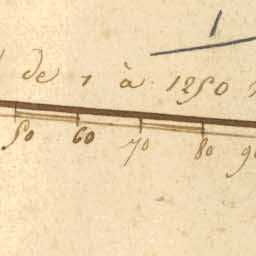 1
de 1 à 1250
50 60 70 80 90